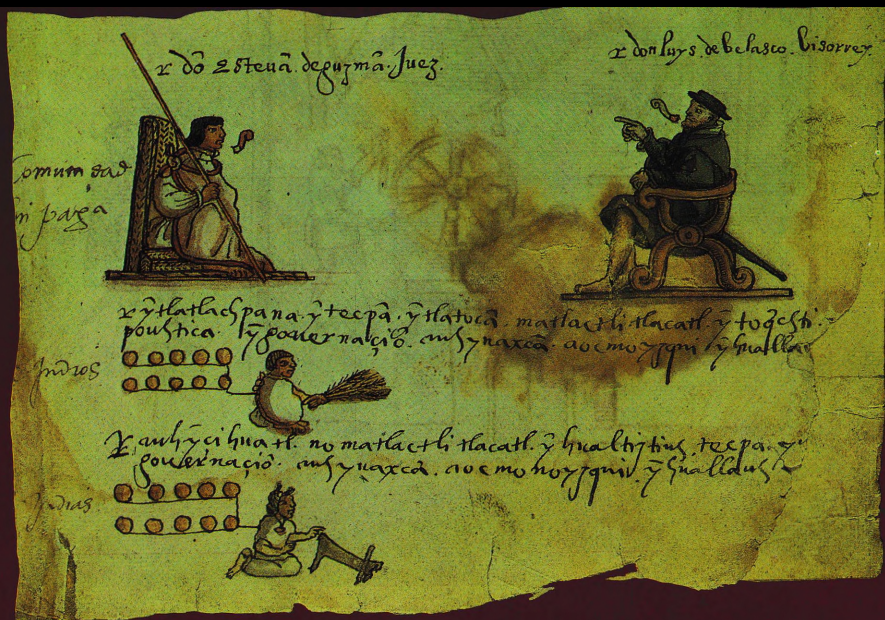 r dō Estevā. deguzmā. Juez.
r don luys. de velasco. visorrey.
Comunidad
paga
r ȳtlatlachpana. ȳtecpā. ȳtlatocā. matlactli tlacatl. ȳ
pouhtica. ȳgovernaçiō. auhynaxcā. aocmo yxqui ȳhualla
Indios
auhȳcihuatl. no matlactli tlacatl. ȳ tecpa. ȳ
governaçiō. auhynaxcā. aocmo noyxqui ȳhuallauh
Indias